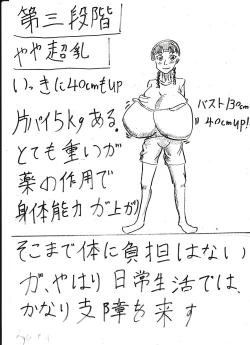 第三段階
やや超乳
いっきに40cmもup
片パイ5kgある。
とても重いが
薬の作用で
身体能力が上がり
バスト130cm
40cmup!
そこまで体に負担はない
が、やはり日常生活では、
かなり支障を来す